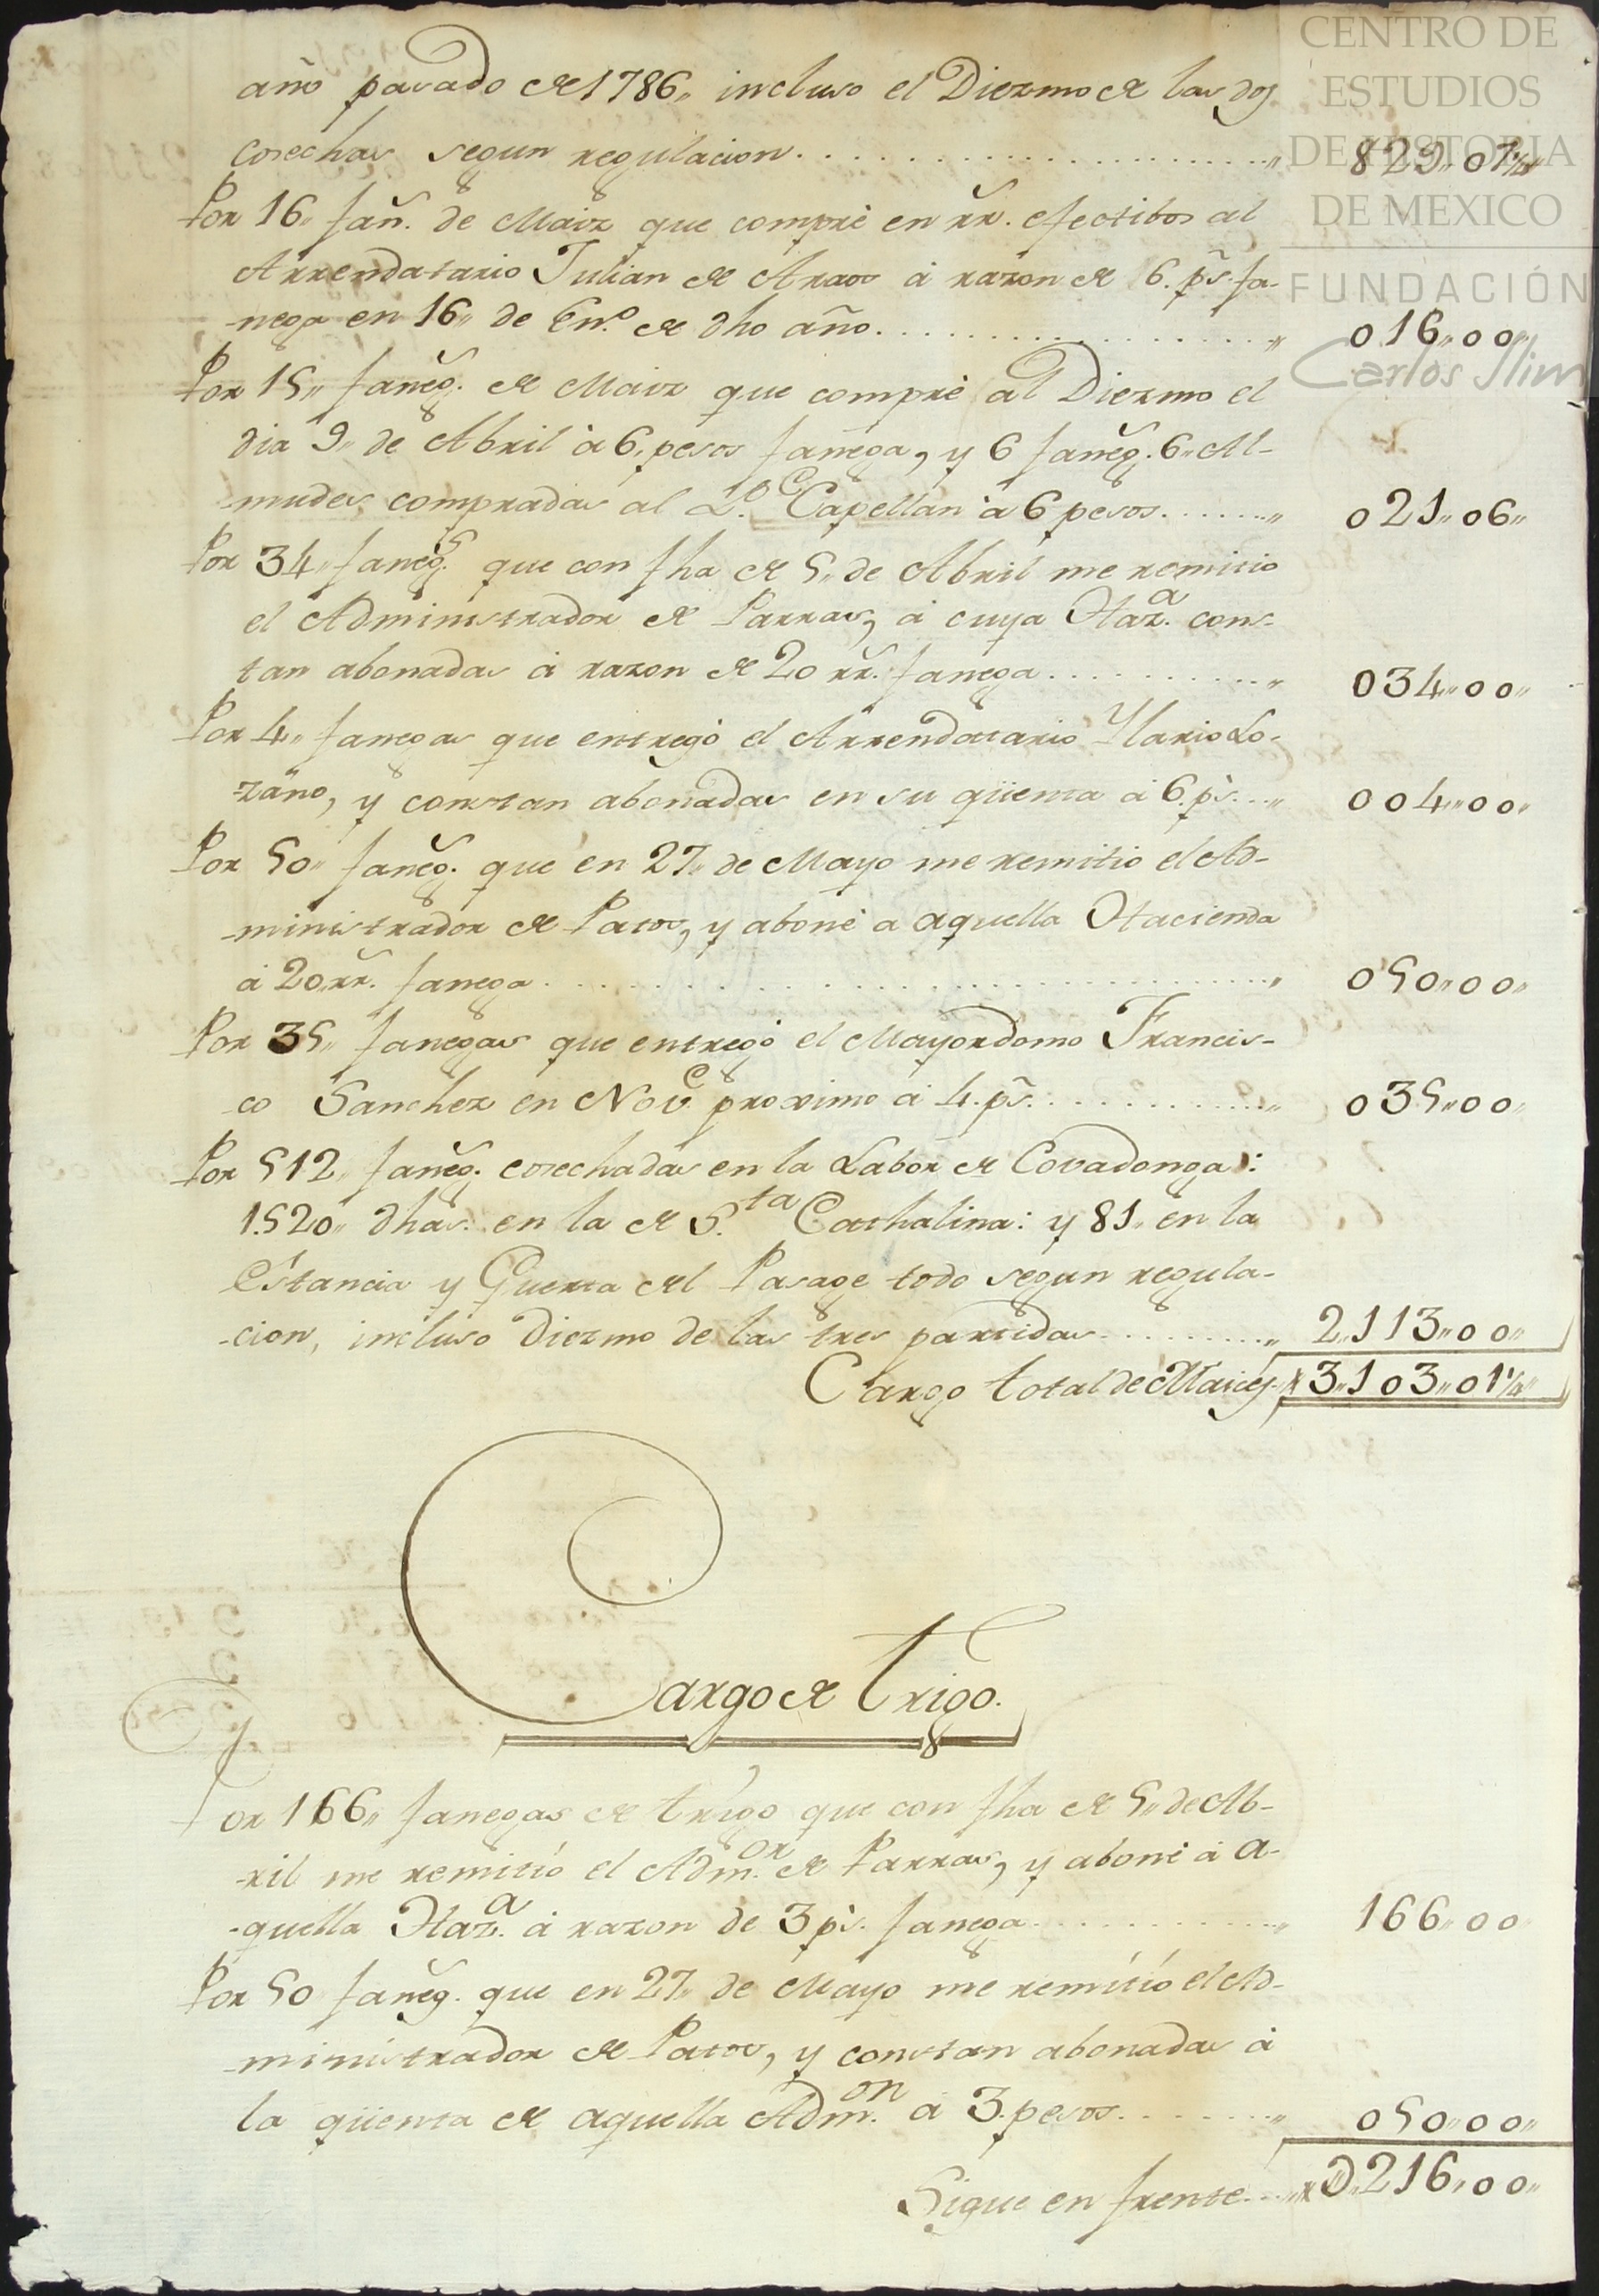 año pasado de 1786,, incluso el Diezmo de las dos
cosechas segun regulacion. . . . . . . . . . ,, 829,,07 1/4,,
Por 16,, fañ. de Maiz que comprè en rr. efectibos al
Arrendatario Julian de Araos à razon de 6. p.s fa-
-nega en 16,, de En.o de dho año. . . . . . . . ,, 016,,00,,
Por 15,, faneg. de Maiz que comprè al Diezmo el
dia 9,, de Abril à 6,, pesos fanega, y 6 faneg. 6,, Al-
-mudes compradas al P.e Capellan à 6 pesos. . . . . ,, 021,,06,,
Por 34,, faneg.s que con fha de 5,, de Abril me remitio
el Administrador de Parras, à cuya Haz.a cons-
tan abonadas à razon de 20 rr. fanega. . . . . . ,, 034,,00,,
Por 4,, fanegas que entregò el Arrendatario Ylario Lo-
-zano, y constan abonadas en su qüenta à 6. p.s . . ,, 004,,00,,
Por 50,, faneg. que en 27,, de Mayo me remitio el Ad-
-ministrador de Patos, y abonè a aquella Hacienda
à 20,, rr. fanega. . . . . . . . . . . ,, 050,,00,,
Por 35,, fanegas que entregò el Mayordomo Francis-
-co Sanchez en Nov.e proximo à 4. p.s . . . . . . ,, 035,,00,,
Por 512,, faneg. cosechadas en la Labor de Covadonga:
1.520,, dhas. en la de S.ta Cathalina: y 81,, en la
Estancia y Guerta del Pasage todo segun regula-
-cion, incluso Diezmo de las tres partidas. . . . . . ,, 2,,113,,00,,
Cargo total de Maices. . 3,,103,,01 1/4,,
Cargo de Trigo.
Por 166,, fanegas de trigo que con fha de 5,, de Ab-
-ril me remitió el Adm.or de Parras, y abonè à a-
-quella Haz.a à razon de 3 p.s fanega. . . . . . . ,, 166,,00,,
Por 50 faneg. que en 27,, de Mayo me remitió el Ad-
-ministrador de Patos, y constan abonadas à
la qüenta de aquella Adm.on à 3. pesos. . . . . . ,, 050,,00,,
Sigue en frente. . . ,, 216,,00,,
CENTRO DE
ESTUDIOS
DE HISTORIA
DE MEXICO
FUNDACIÓN
Carlos Slim